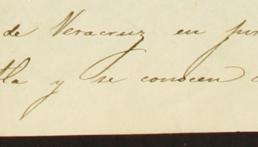 de Veracruz en
y se conocen